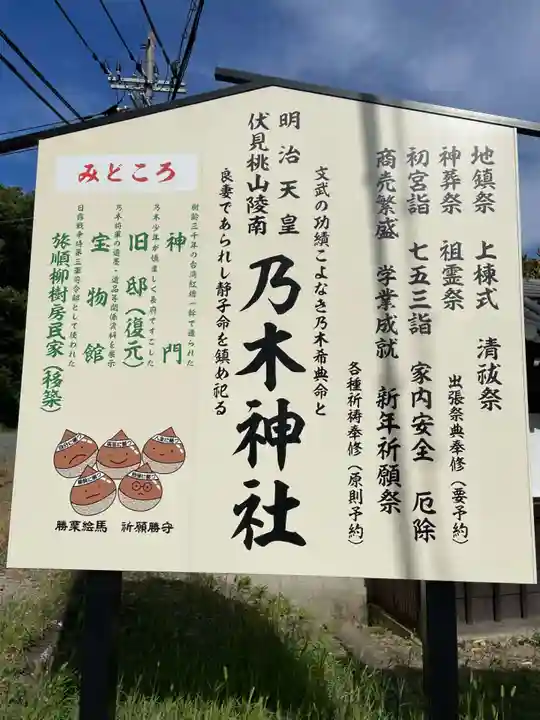 地鎮祭 上棟式 清祓祭
神葬祭 祖霊祭 出張祭典奉修(要予約)
初宮詣 七五三詣 家内安全 厄除
商売繁盛 学業成就 新年祈願祭
各種祈祷奉修(原則予約)
文武の功績こよなき乃木希典命と
明治天皇
伏見桃山陵南
乃木神社
良妻であられし静子命を鎮め祀る
みどころ
樹齢三千年の台湾紅檜一本で造られた
神門
乃木少年が慎ましく長府ですごした
旧邸(復元)
乃木将軍の遺墨・遺品等関係資料を展示
宝物館
日露戦争時第三軍司令部として使われた
旅順柳樹房民家(移築)
勝栗絵馬 祈願勝守